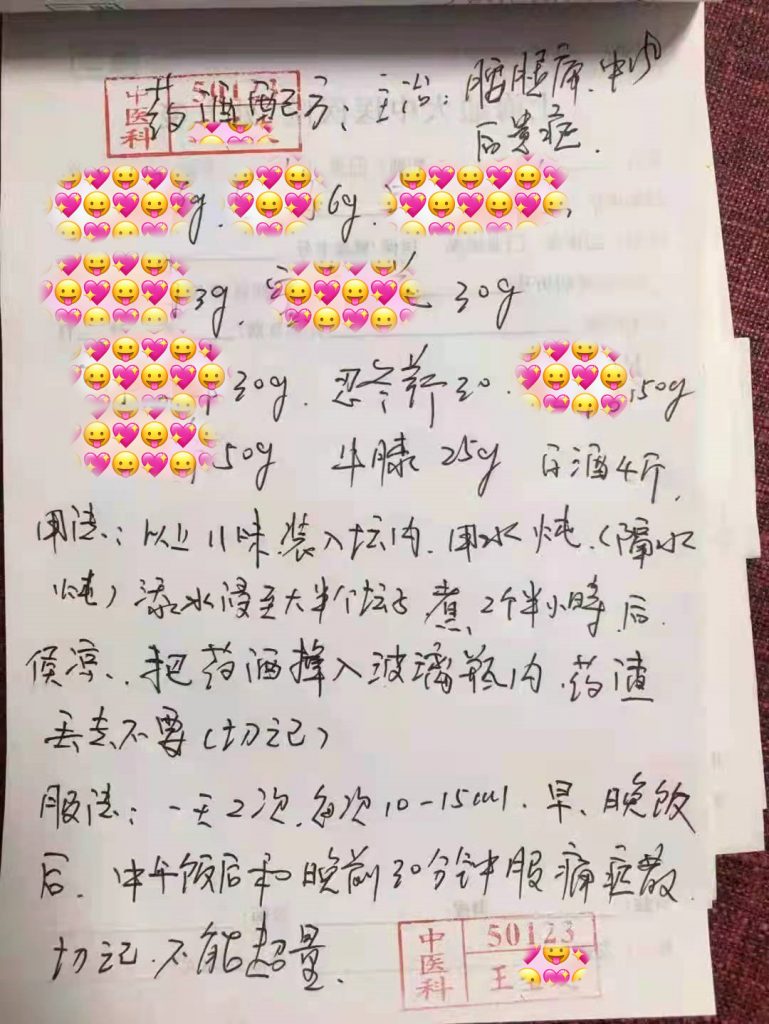 中医科 50123
药酒配方：主治：腰腿痛.中风
后遗症.
g. 6g.
3g. 30g
30g. 忍冬藤30. 50g
50g 牛膝 25g 白酒4斤.
用法：以上11味装入坛内.用水炖.(隔水
炖)添水浸至大半个坛子煮2个半小时后.
候凉.把药酒撵入玻璃瓶内.药渣
丢去不要(切记)
服法：一天2次.每次10-15ml.早、晚饭
后.中午饭后和晚前30分钟服痛症散.
切记.不能超量.
中医科 50123
王